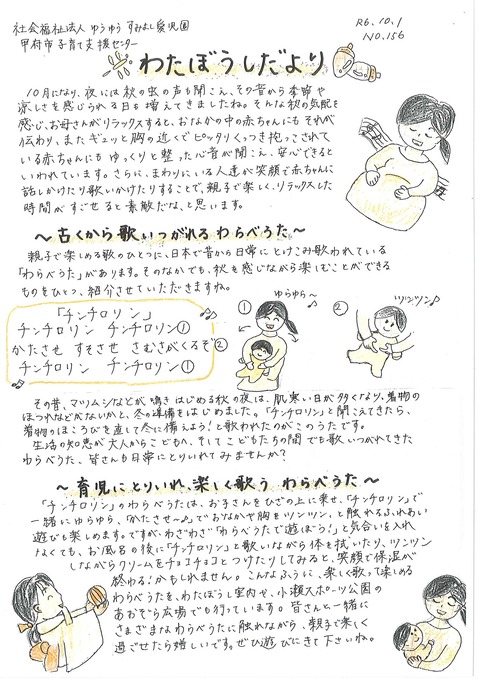 社会福祉法人 ゆうゆう すみよし愛児園
甲府市子育て支援センター
R6.10.1
NO.156
わたぼうしだより
10月になり、夜には秋の虫の声も聞こえ、その音から季節や
涼しさを感じられる日も増えてきましたね。そんな秋の気配を
感じ、お母さんがリラックスすると、おなかの中の赤ちゃんにもそれが
伝わり、また、ギュッと胸の近くでピッタリくっつき抱っこされて
いる赤ちゃんにもゆっくりと整った心音が聞こえ、安心できると
いわれています。さらに、まわりにいる人達が笑顔で赤ちゃんに
話しかけたり歌いかけたりすることで、親子で楽しく、リラックスした
時間がすごせると素敵だな、と思います。
～古くから歌いつがれる わらべうた～
親子で楽しめる歌のひとつに、日本で昔から日常にとけこみ歌われている
「わらべうた」があります。そのなかでも、秋を感じながら楽しむことができる
ものをひとつ、紹介させていただきますね。
「チンチロリン」
チンチロリン チンチロリン①
かたさせ すそさせ さむさがくるぞ②
チンチロリン チンチロリン①
① ゆらゆら～
② ツンツン♪
その昔、マツムシなどが鳴きはじめる秋の夜は、肌寒い日が多くなり、着物の
ほつれなどがないかと、冬の準備をはじめました。「チンチロリン」と聞こえてきたら、
着物のほころびを直して冬に備えよう!と歌われたのがこのうたです。
生活の知恵が大人からこどもへ、そしてこどもたちの間でも歌いつがれてきた
わらべうた、皆さんも日常にとりいれてみませんか?
～育児にとりいれ、楽しく歌う わらべうた～
「チンチロリン」のわらべうたは、お子さんをひざの上に乗せ、「チンチロリン」で
一緒にゆらゆら、「かたさせ～♪」でおなかや胸をツンツン、と触れるふれあい
遊びも楽しめます。ですが、わざわざ「わらべうたで遊ぼう!」と気合いを入れ
なくても、お風呂の後に「チンチロリン」と歌いながら体を拭いたり、ツンツン
しながらクリームをチョコチョコとつけたりしてみると、笑顔で保湿が
終わる!かもしれません。こんなふうに、楽しく歌って楽しめる
わらべうたを、わたぼうし室内や、小瀬スポーツ公園の
あおぞら広場でも行っています。皆さんと一緒に
さまざまなわらべうたに触れながら、親子で楽しく
過ごせたら嬉しいです。ぜひ遊びにきて下さいね。